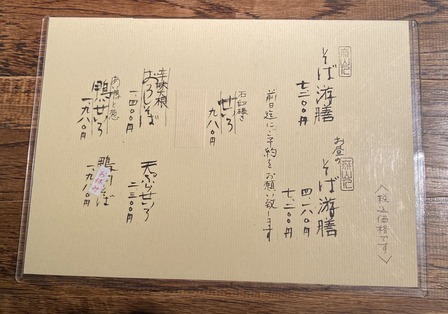 〈税込価格です〉
そば游膳
七二〇〇円
お昼の
そば游膳
四一八〇円
七、二〇〇円
前日迄にご予約をお願い致します
石臼挽き
せいろ
九八〇円
辛味大根
おろしそば
一、四〇〇円
天ぷらせいろ
二三〇〇円
鴨せいろ
一、九八〇円
一、九八〇円